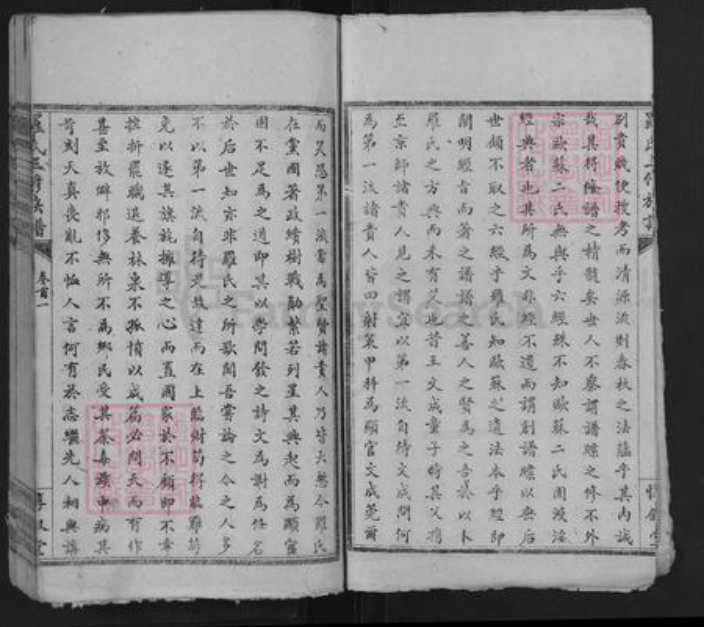 列貴戚使授考而清源流則春秋之法蘊乎其內誠
哉其得修譜之精髓矣世人不察謂譜牒之作不外
宗歐蘇二氏無與乎六經殊不知歐蘇二氏固浸淫
經典者也其所為文非經不道而謂別譜牒以無后
世頗不取之六經乎羅氏知歐蘇之遺法本乎經即
闡明經旨而著之譜譜之善人之賢為之吾於以卜
羅氏之方興而未有艾也昔王文成童子時其父攜
至京師諸貴人見之謂宜以第一流自待文成問何
為第一流諸貴人皆曰射策甲科為顯官文成莞爾
而笑恐第一流當為聖賢諸貴人乃皆大慙今羅氏
在黨國著政績樹戰勛繁若列星其興起而為顯宦
固不足為之道即其以學問發之詩文為謝為任名
於后世知亦非羅氏之所歇閒吾嘗論之今之人多
不以第一流自待灵故達而在上臨財苟得臨難苟
免以遂其旗旄擁導之心而置國家於不顧即不幸
挫折罷職退養林泉不孤憤以成篇必問天而有作
甚至放僻邪侈無所不為鄉民受其荼毒談中病其
苛刻天真喪亂不恤人言何有於志繼先人相與講
羅氏三修族譜
卷首一